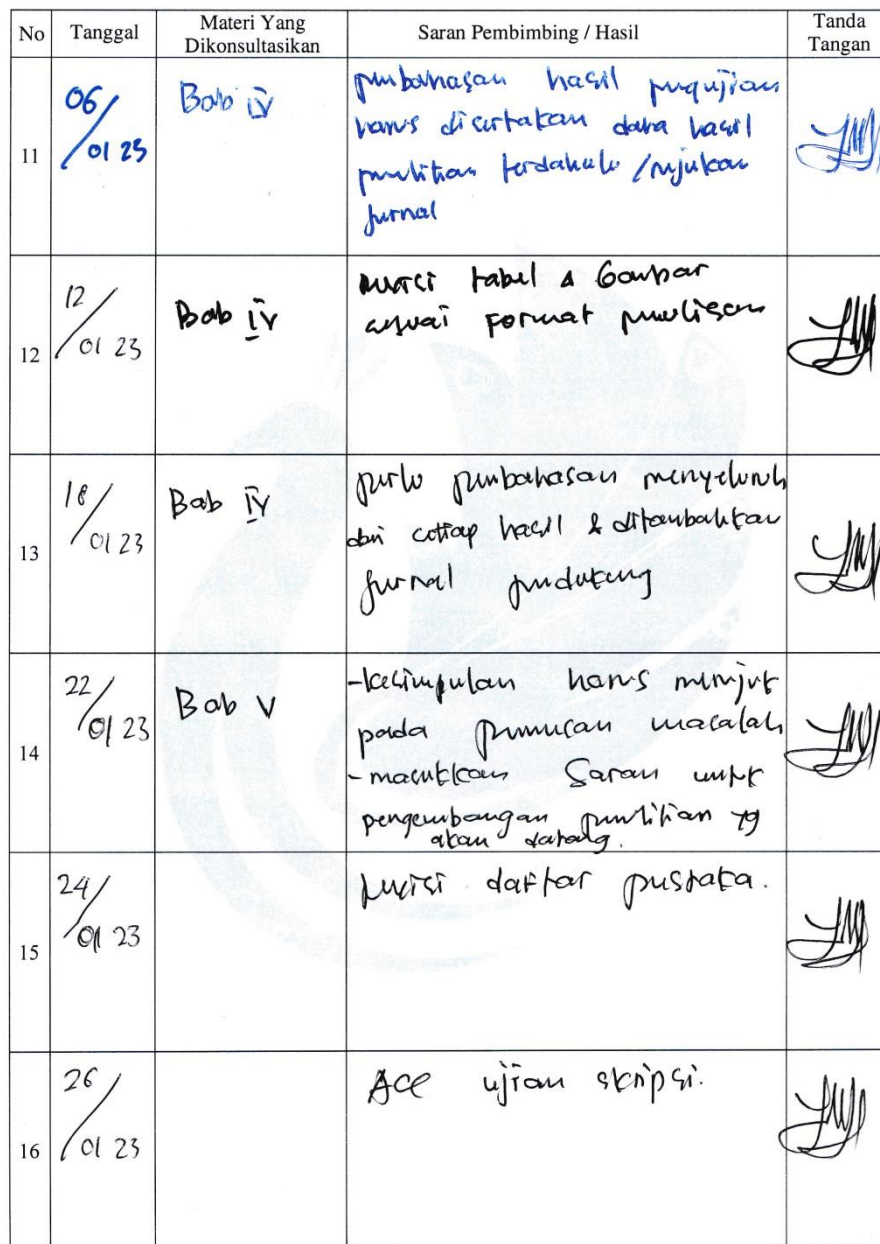 No Tanggal Materi Yang Dikonsultasikan Saran Pembimbing / Hasil Tanda Tangan
11 06/01 23 Bab IV pembahasan hasil pengujian
harus disertakan data hasil
penelitian terdahulu / rujukan
jurnal
12 12/01 23 Bab IV revisi tabel & Gambar
sesuai format penulisan
13 18/01 23 Bab IV perlu pembahasan menyeluruh
dari setiap hasil & ditambahkan
jurnal pendukung
14 22/01 23 Bab V -kesimpulan harus merujuk
pada perumusan masalah
-masukkan Saran untuk
pengembangan penelitian yg
akan datang.
15 24/01 23 revisi daftar pustaka.
16 26/01 23 Acc ujian skripsi.